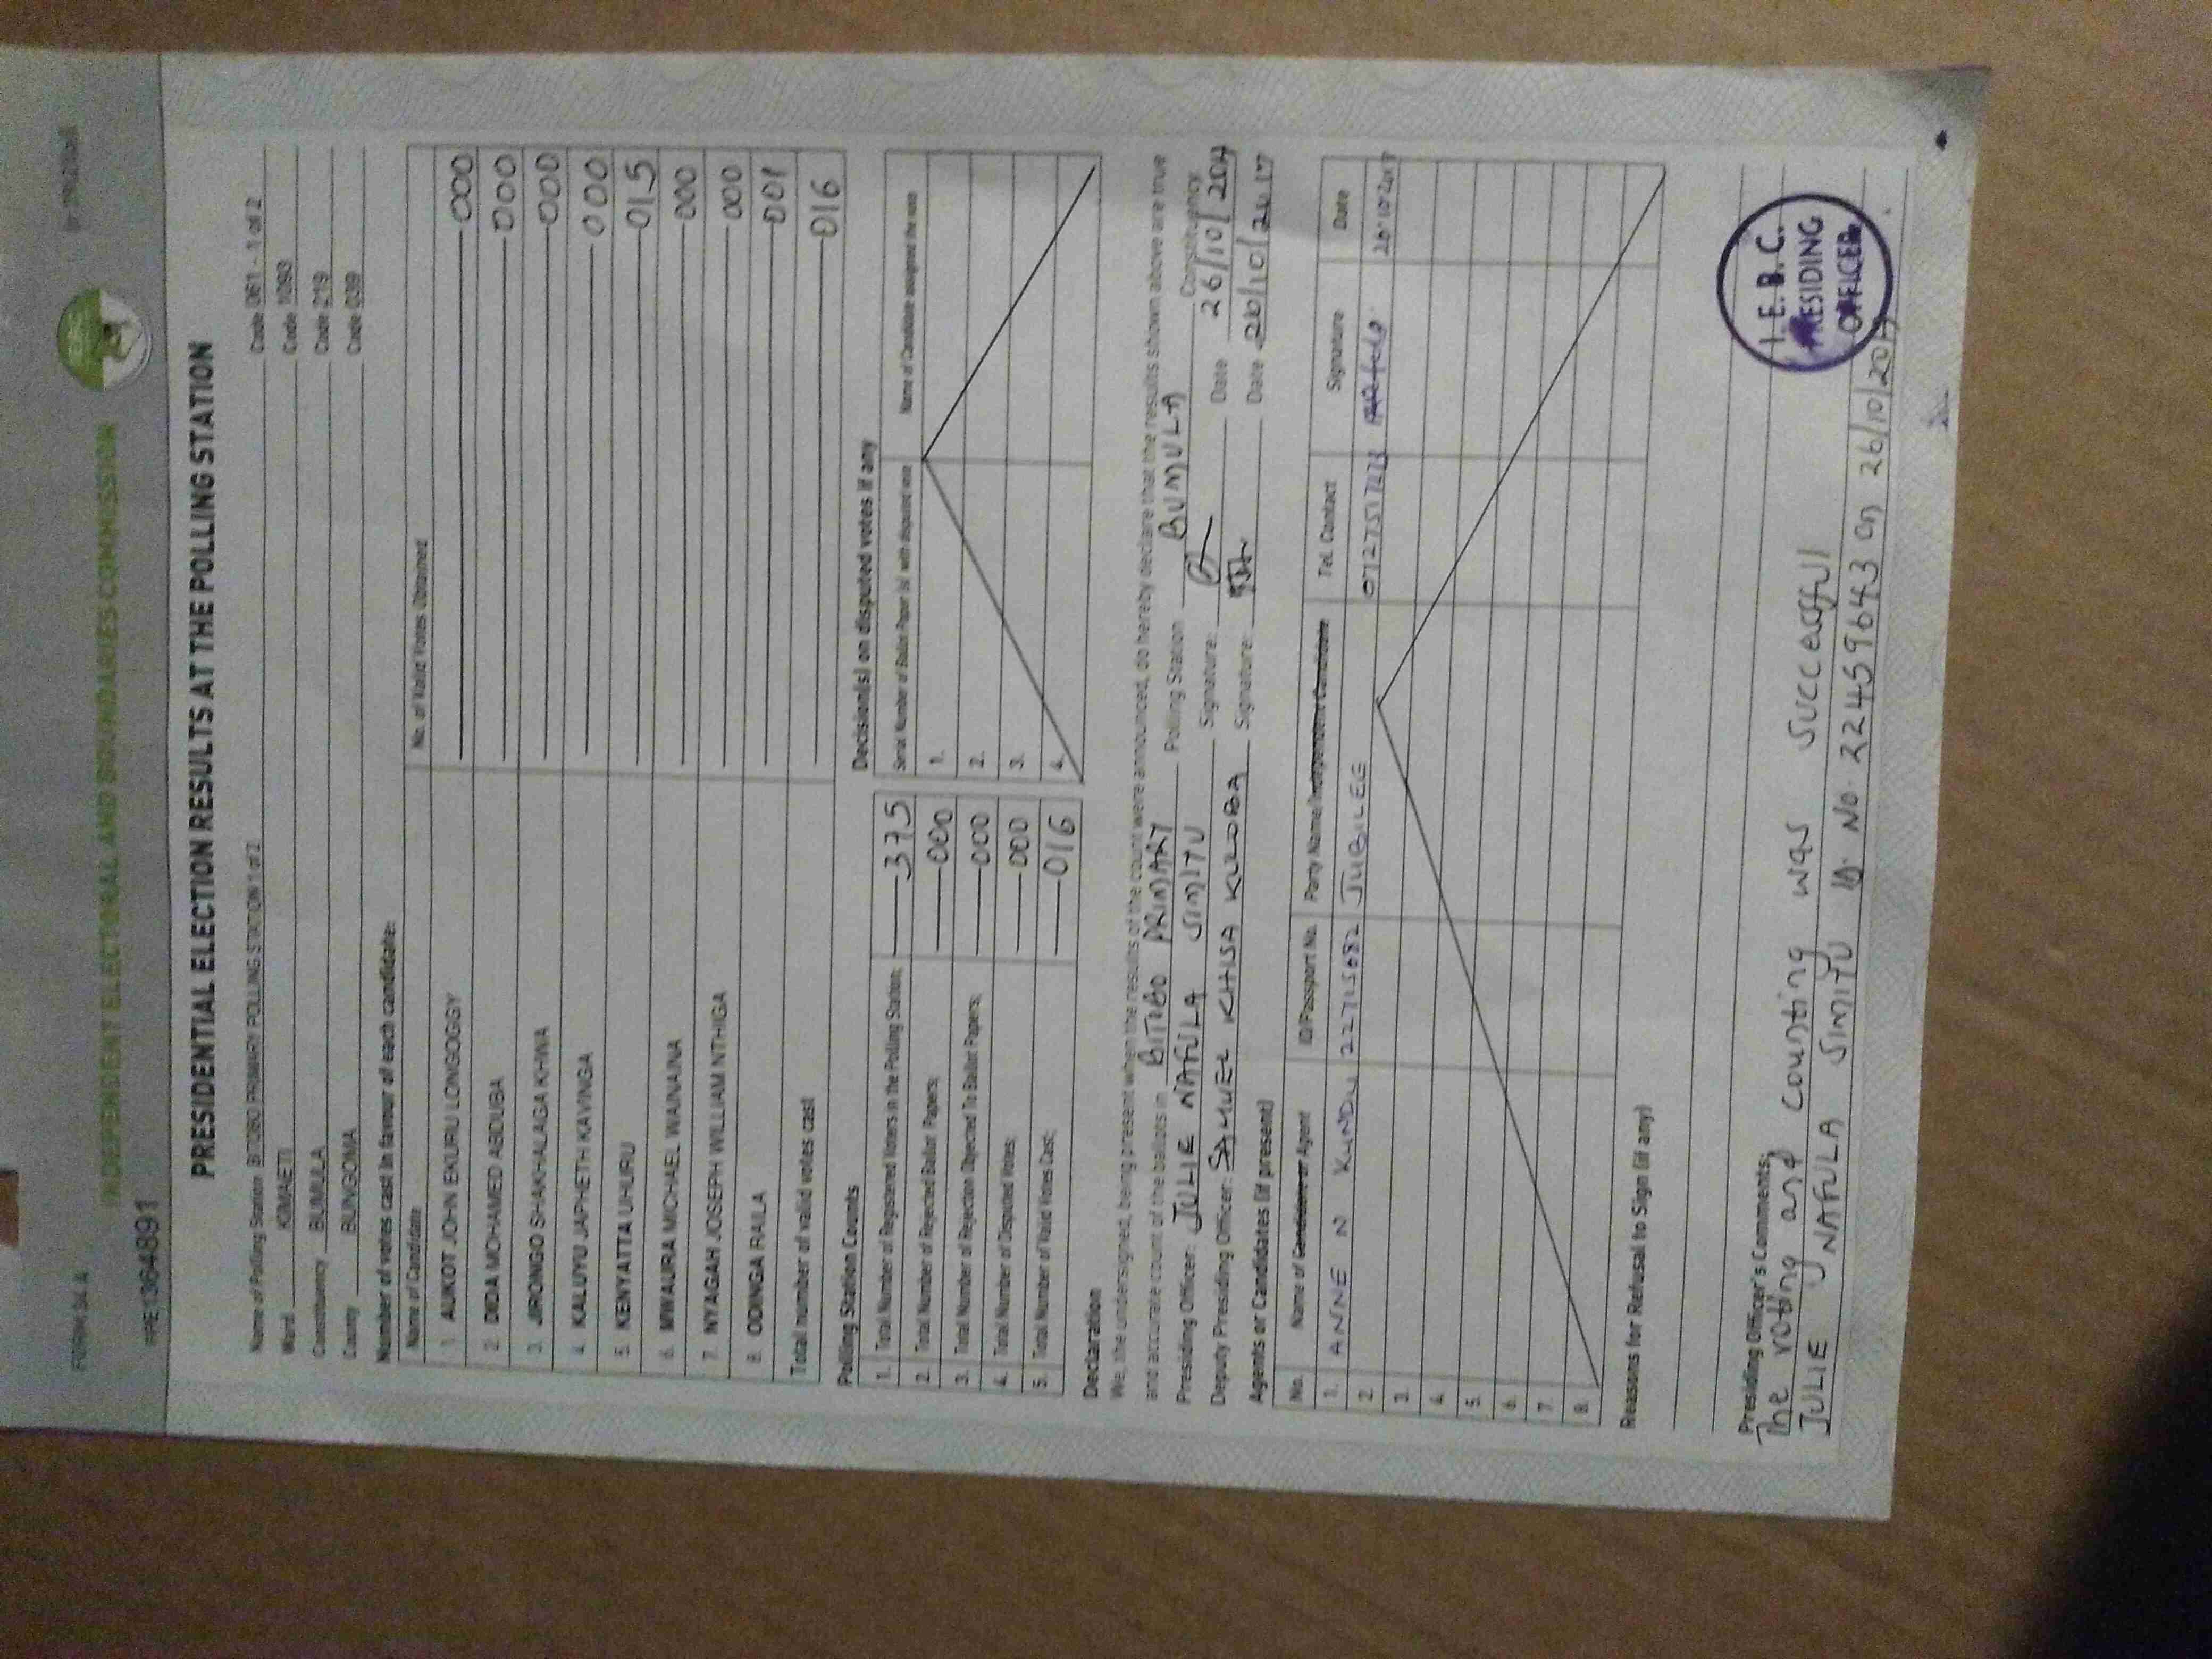 FORM 34 A
INDEPENDENT ELECTORAL AND BOUNDARIES COMMISSION
PRE1364891
PRESIDENTIAL ELECTION RESULTS AT THE POLLING STATION
Name of Polling Station BITOBO PRIMARY POLLING STATION 1 of 2 Code 061 - 1 of 2
Ward KIMAETI Code 1093
Constituency BUMULA Code 219
County BUNGOMA Code 039
Number of votes cast in favour of each candidate:
Name of Candidate No. of Valid Votes Obtained
1. AUKOT JOHN EKURU LONGOGGY 000
2. DIDA MOHAMED ABDUBA 000
3. JIRONGO SHAKHALAGA KHWA 000
4. KALUYU JAPHETH KAVINGA 000
5. KENYATTA UHURU 015
6. MWAURA MICHAEL WAINAINA 000
7. NYAGAH JOSEPH WILLIAM NTHIGA 000
8. ODINGA RAILA 001
Total number of valid votes cast 016
Polling Station Counts
1. Total Number of Registered Voters in the Polling Station; 375
2. Total Number of Rejected Ballot Papers; 000
3. Total Number of Rejection Objected To Ballot Papers; 000
4. Total Number of Disputed Votes; 000
5. Total Number of Valid Votes Cast; 016
Decision(s) on disputed votes if any
Serial Number of Ballot Paper (s) with disputed vote Name of Candidate assigned the vote
1.
2.
3.
4.
Declaration
We, the undersigned, being present when the results of the count were announced, do hereby declare that the results shown above are true
and accurate count of the ballots in BITIBO PRIMARY Polling Station BUMULA Constituency
Presiding Officer: JULIE NAFULA SIMITU Signature: Date 26/10/2017
Deputy Presiding Officer: SAMUEL KHISA KULOBA Signature: Date 26/10/2017
Agents or Candidates (if present)
No. Name of Candidate or Agent ID/Passport No. Party Name/Independent Candidate Tel. Contact Signature Date
1. ANNE N KUNDU JUBILEE
2.
3.
4.
5.
6.
7.
8.
Reasons for Refusal to Sign (if any)
Presiding Officer's Comments;
The voting and counting was successfull
JULIE NAFULA SIMITU ID. No. 22459643 on 26/10/2017
I.E.B.C.
PRESIDING
OFFICER